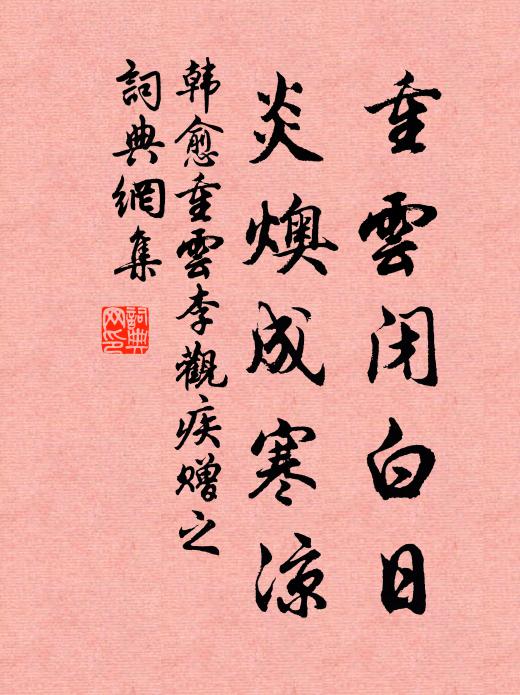 重雲闭白日
炎燠成寒涼
韩愈重雲李觀疾赠之
詞典網集
詞典
网印